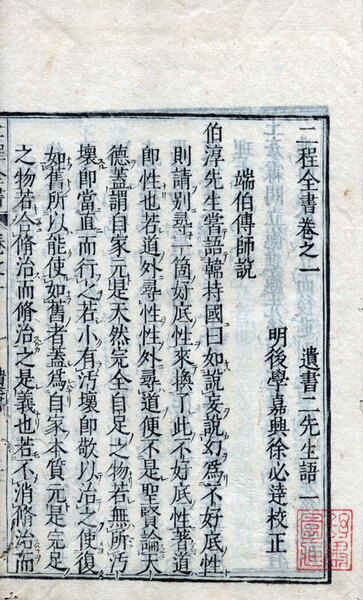 二程全書卷之一　遺書二先生語一
明後學嘉興徐必達校正
端伯傳師說
伯淳先生嘗語韓持國曰如說妄說幻爲不好底性
則請別尋一箇好底性來換了此不好底性著道
即性也若道外尋性性外尋道便不是聖賢論天
德蓋謂自家元是天然完全自足之物若無所汚
壞即當直而行之若小有汚壞即敬以治之使復
如舊所以能使如舊者蓋爲自家本質元是完足
之物若合脩治而脩治之是義也若不消脩治而
二程全書